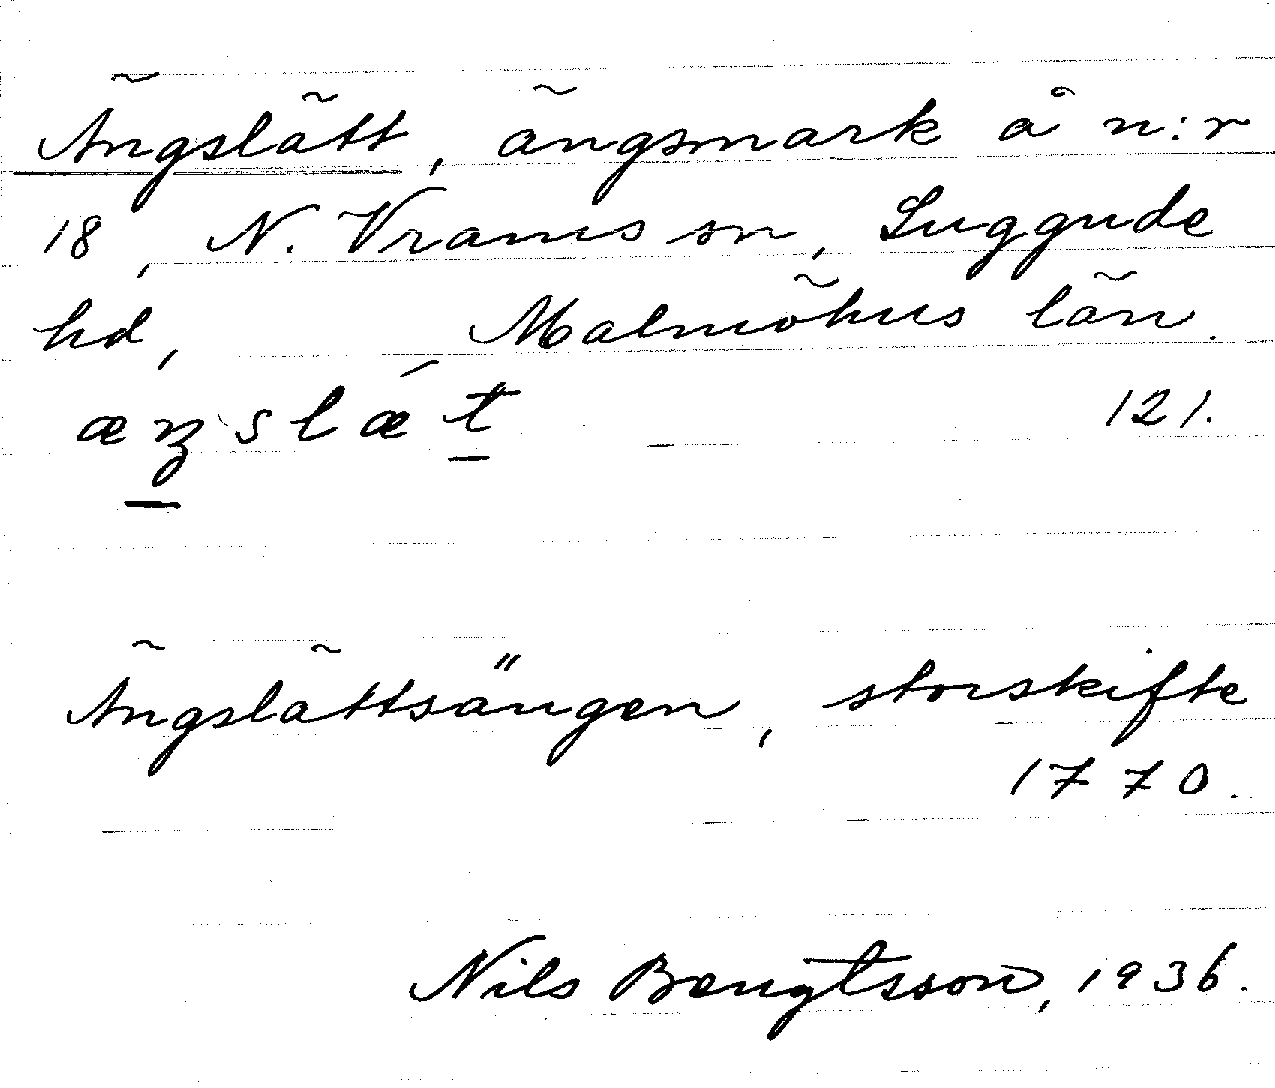 Ängslätt, ängsmark å n:r
18, N. Vrams sn, Luggude
hd, Malmöhus län.
æŋslǽt 121.
Ängslättsängen, storskifte
1770.
Nils Bengtsson, 1936.